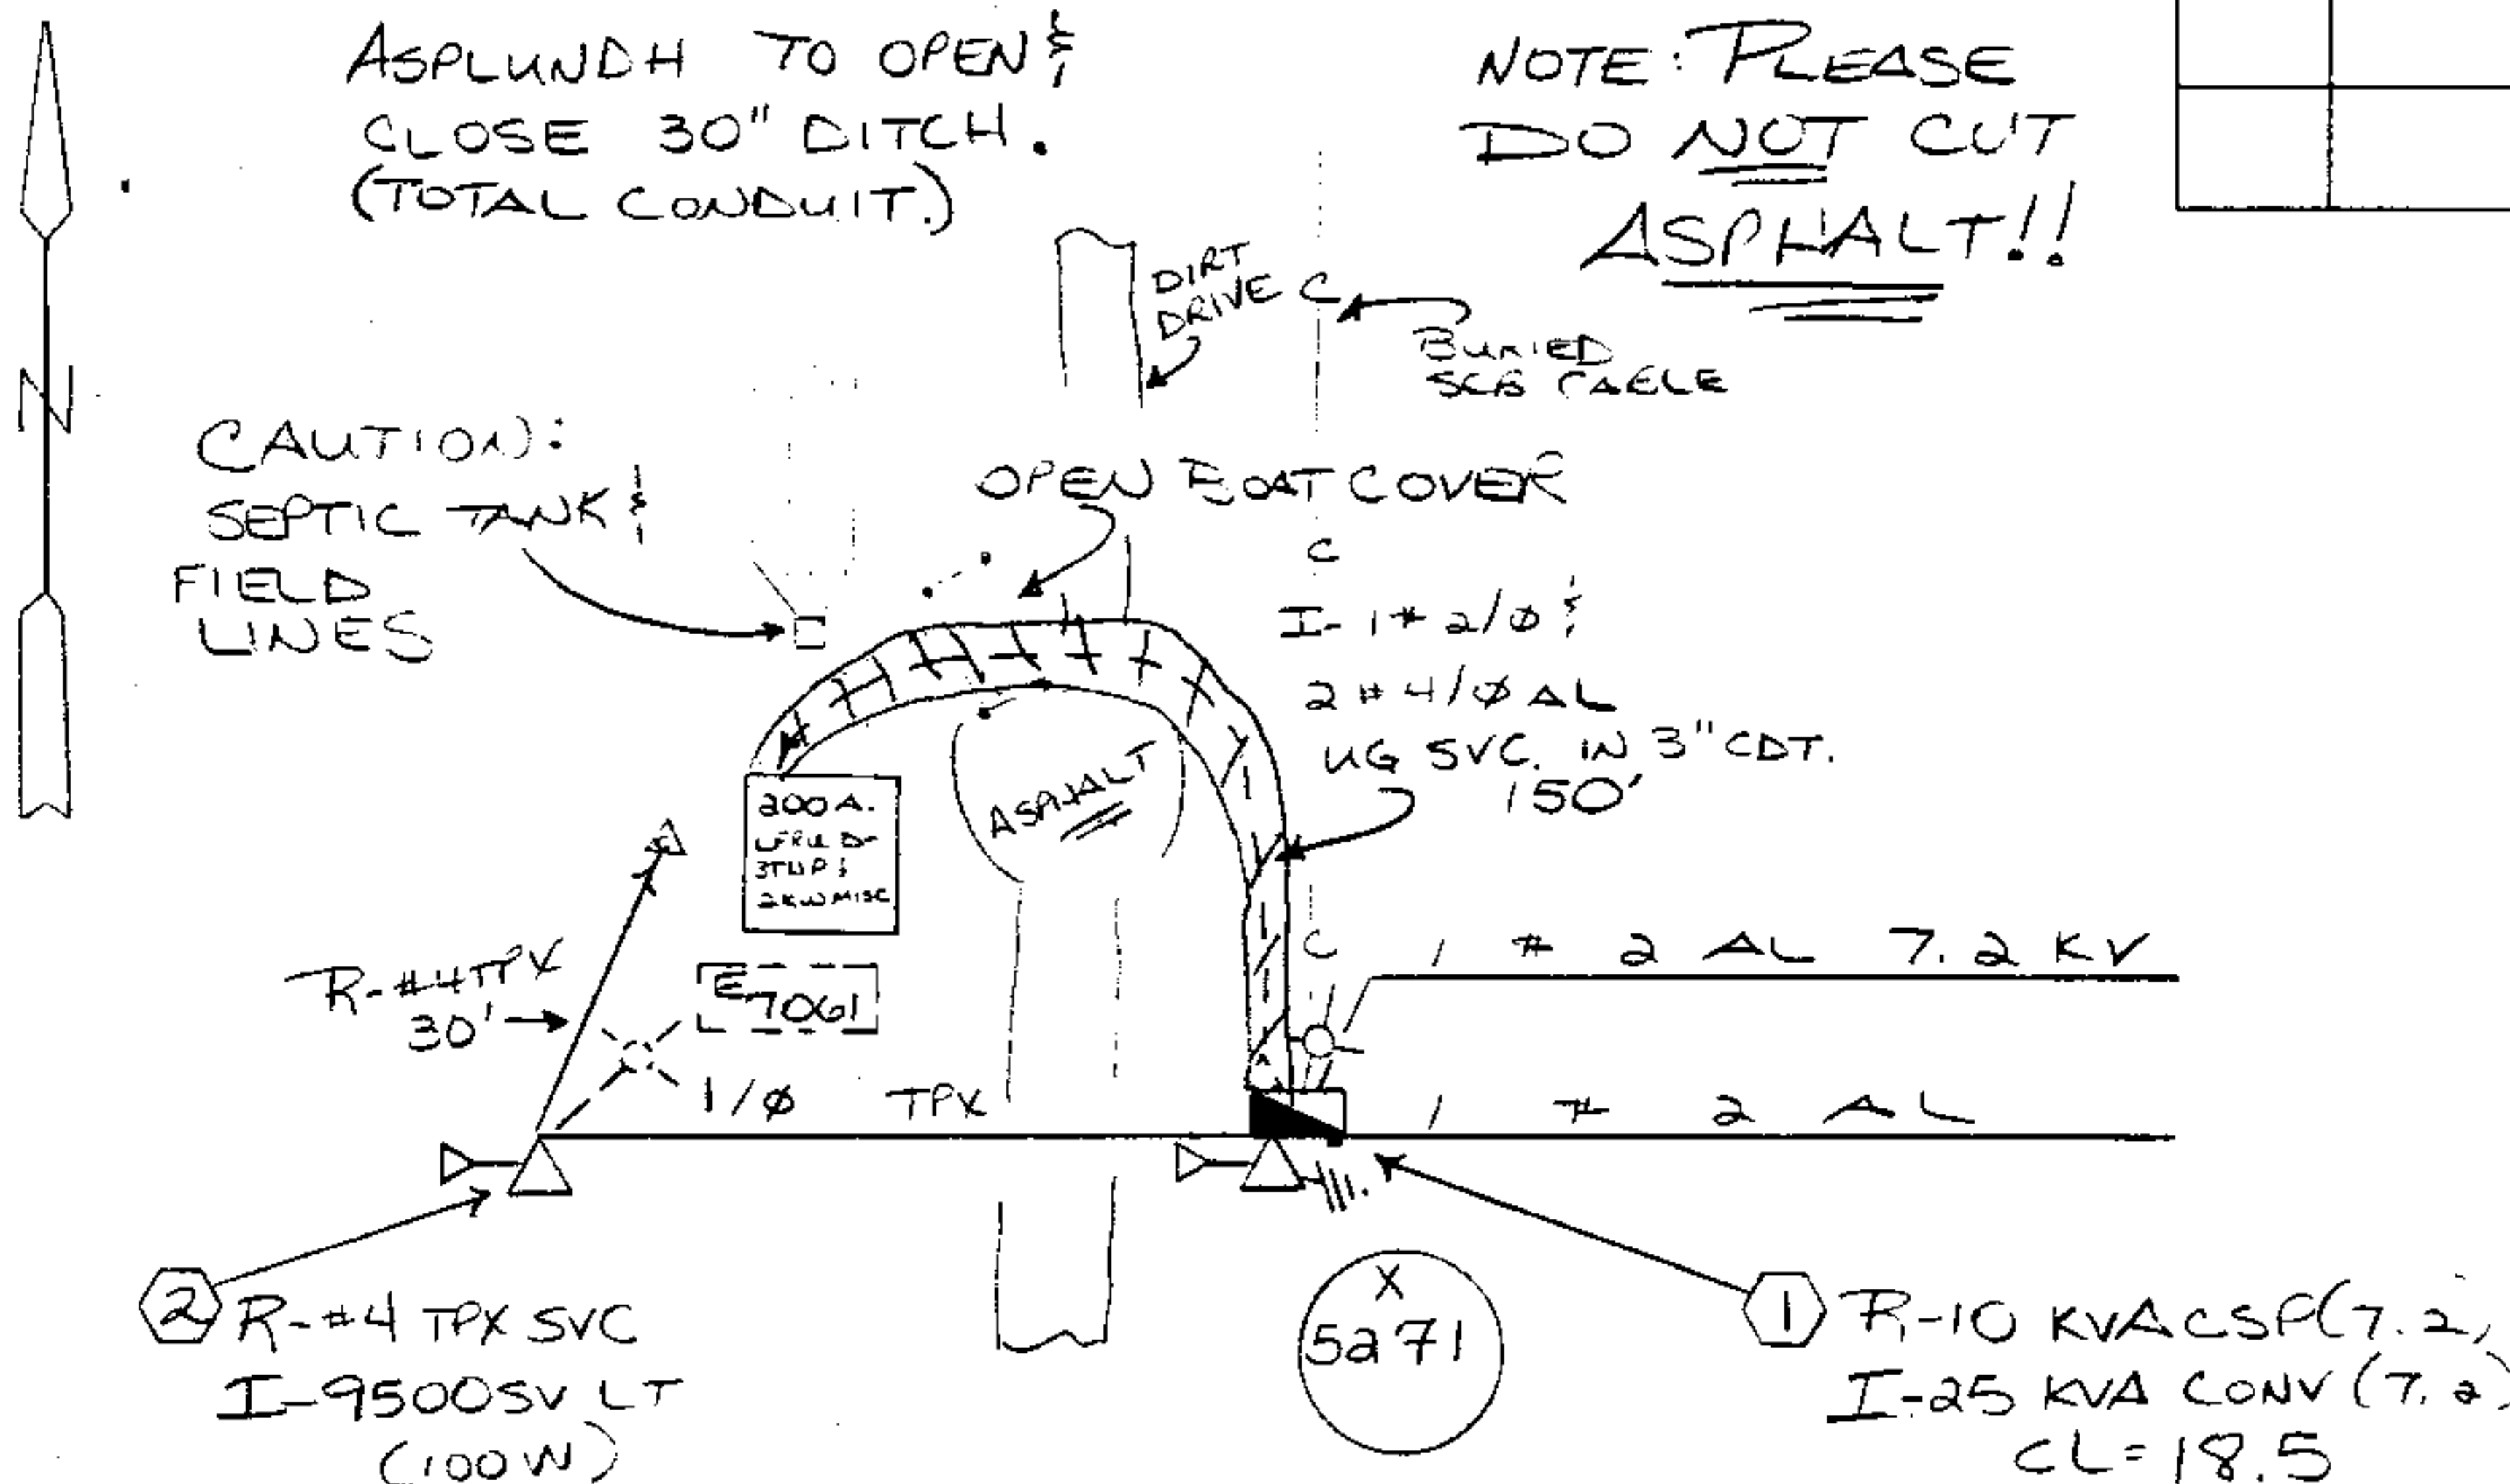 ASPLUNDH TO OPEN &
CLOSE 30" DITCH.
(TOTAL CONDUIT.)
NOTE: PLEASE
DO NOT CUT
ASPHALT!!
DIRT
DRIVE
C
BURIED
CABLE
N
CAUTION:
SEPTIC TANK &
FIELD
LINES
OPEN BOAT COVER
C
I-1#2/Ø &
2#4/Ø AL
UG SVC. IN 3" CDT.
150'
ASPHALT
200 A.
2KW MISC
R-#4 TPX
30'
E7061
C
1 # 2 AL 7.2 KV
1/Ø TPX
1 # 2 AL
X
5271
2
R-#4 TPX SVC
I-9500SV LT
(100W)
1
R-10 KVA CSP (7.2)
I-25 KVA CONV (7.2)
CL=18.5